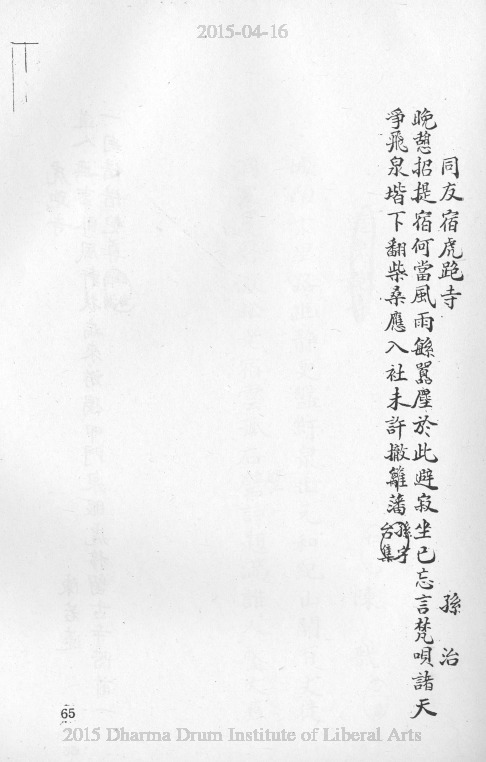 2015-04-16
同友宿虎跑寺
孫治
晚憩招提宿何當風雨緐囂塵於此避寂坐已忘言梵唄諸天
爭飛泉堦下翻柴桑應入社未許撤籬藩孫宇台集
65
2015 Dharma Drum Institute of Liberal Arts